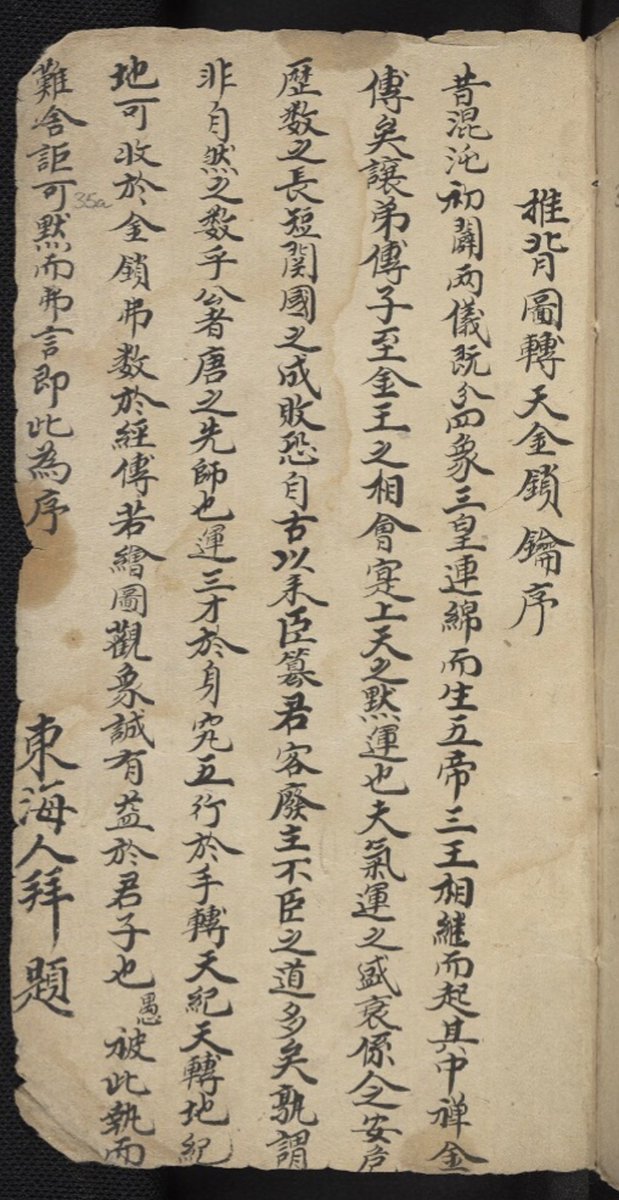 推背圖轉天金鎖鑰序
昔混沌初闢两儀既分四象三皇連綿而生五帝三王相繼而起其中禅金
傳矣讓弟傳子至金王之相會寔上天之默運也夫氣運之盛衰係人之安危
歷数之長短関國之成敗恐自古以来臣篡君客廢主不臣之道多矣孰謂
非自然之数乎公者唐之先師也運三才於身究五行於手轉天紀天轉地紀
地可收於金鎖弗数於經傳若繪圖觀象誠有益於君子也愚被此執而
難舍詎可默而弗言即此為序
35a
東海人拜題